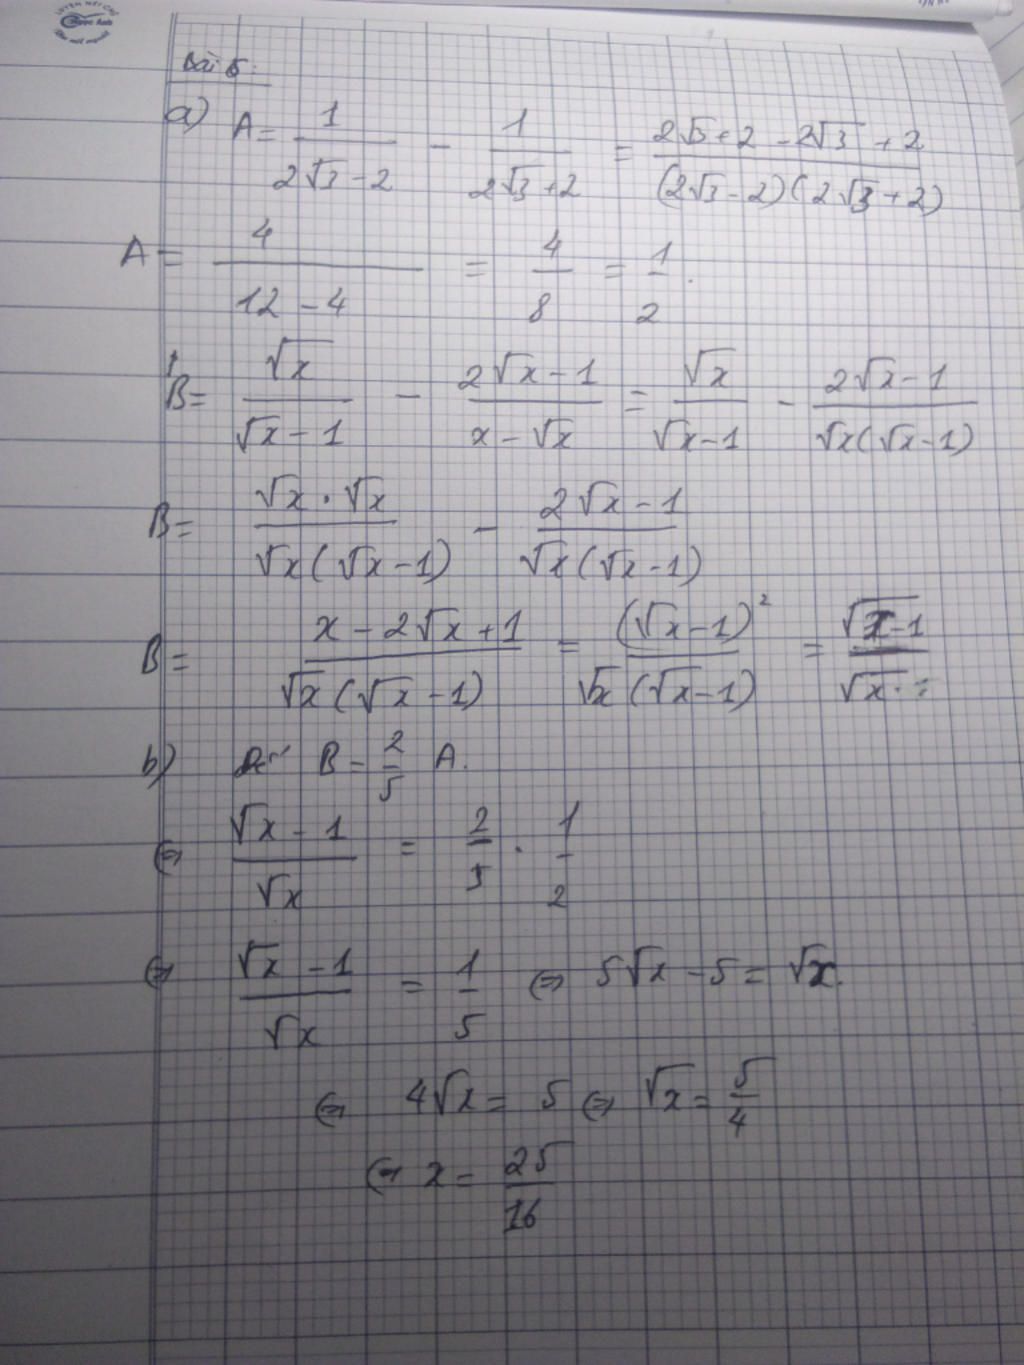 LUYỆN NÉT CHỮ
Ngọc Anh
Bài 5:
a) A = 1/(2√3 - 2) - 1/(2√3 + 2) = (2√3 + 2 - 2√3 + 2)/((2√3 - 2)(2√3 + 2))
A = 4/(12 - 4) = 4/8 = 1/2.
B = √x/(√x - 1) - (2√x - 1)/(x - √x) = √x/(√x - 1) - (2√x - 1)/(√x(√x - 1))
B = (√x . √x)/(√x(√x - 1)) - (2√x - 1)/(√x(√x - 1))
B = (x - 2√x + 1)/(√x(√x - 1)) = (√x - 1)²/(√x(√x - 1)) = (√x - 1)/√x
b) Để B = 2/5 A.
⇔ (√x - 1)/√x = 2/5 . 1/2
⇔ (√x - 1)/√x = 1/5 ⇔ 5√x - 5 = √x.
⇔ 4√x = 5 ⇔ √x = 5/4
⇔ x = 25/16